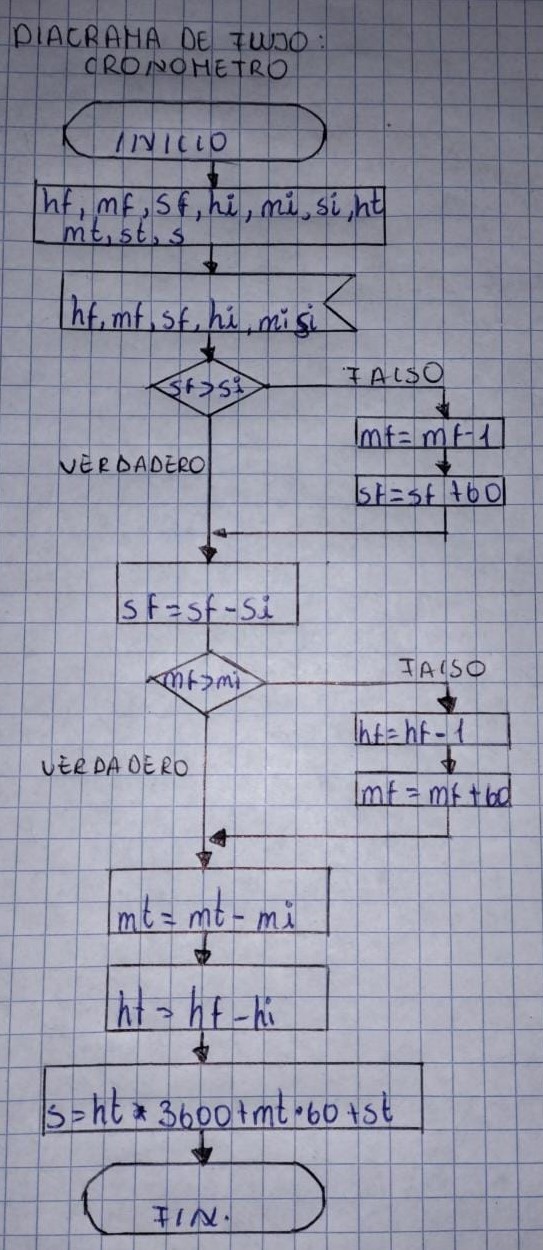 DIAGRAMA DE FLUJO:
CRONOMETRO
INICIO
hf, mf, sf, hi, mi, si, ht
mt, st, s
hf, mf, sf, hi, mi si
sf>si
FALSO
mf= mf-1
VERDADERO
sf=sf +60
sf=sf-si
mf>mi
FALSO
hf=hf-1
VERDADERO
mf=mf+60
mt= mt- mi
ht= hf-hi
s=ht*3600+mt·60+st
FIN.